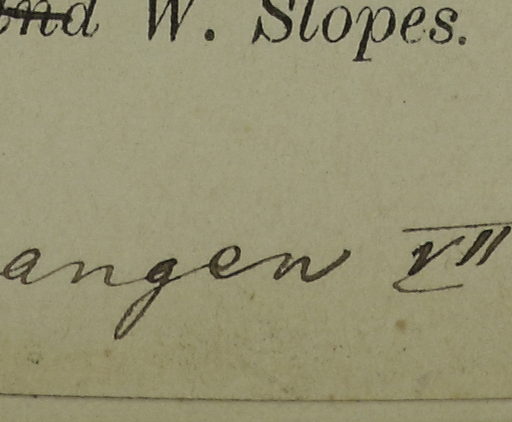 and W. Slopes.
angen VII